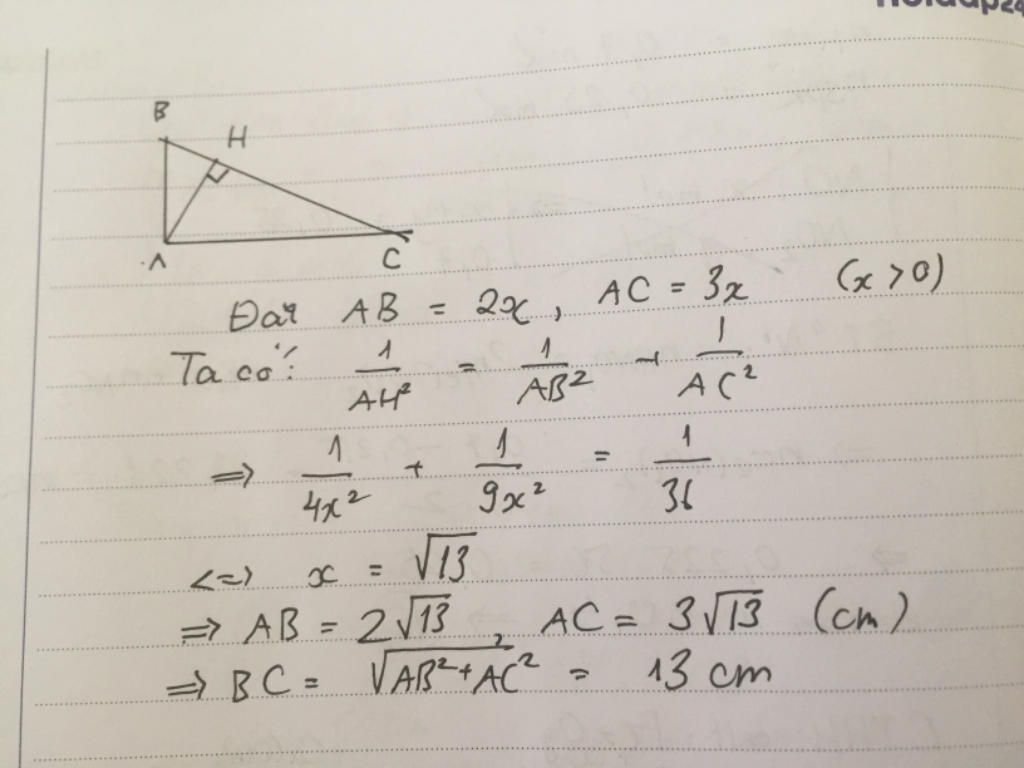 Hoidap24
B
H
A
C
Đặt AB = 2x, AC = 3x (x > 0)
Ta có: 1/AH² = 1/AB² + 1/AC²
=> 1/4x² + 1/9x² = 1/36
<=> x = √13
=> AB = 2√13, AC = 3√13 (cm)
=> BC = √AB² + AC² = 13 cm